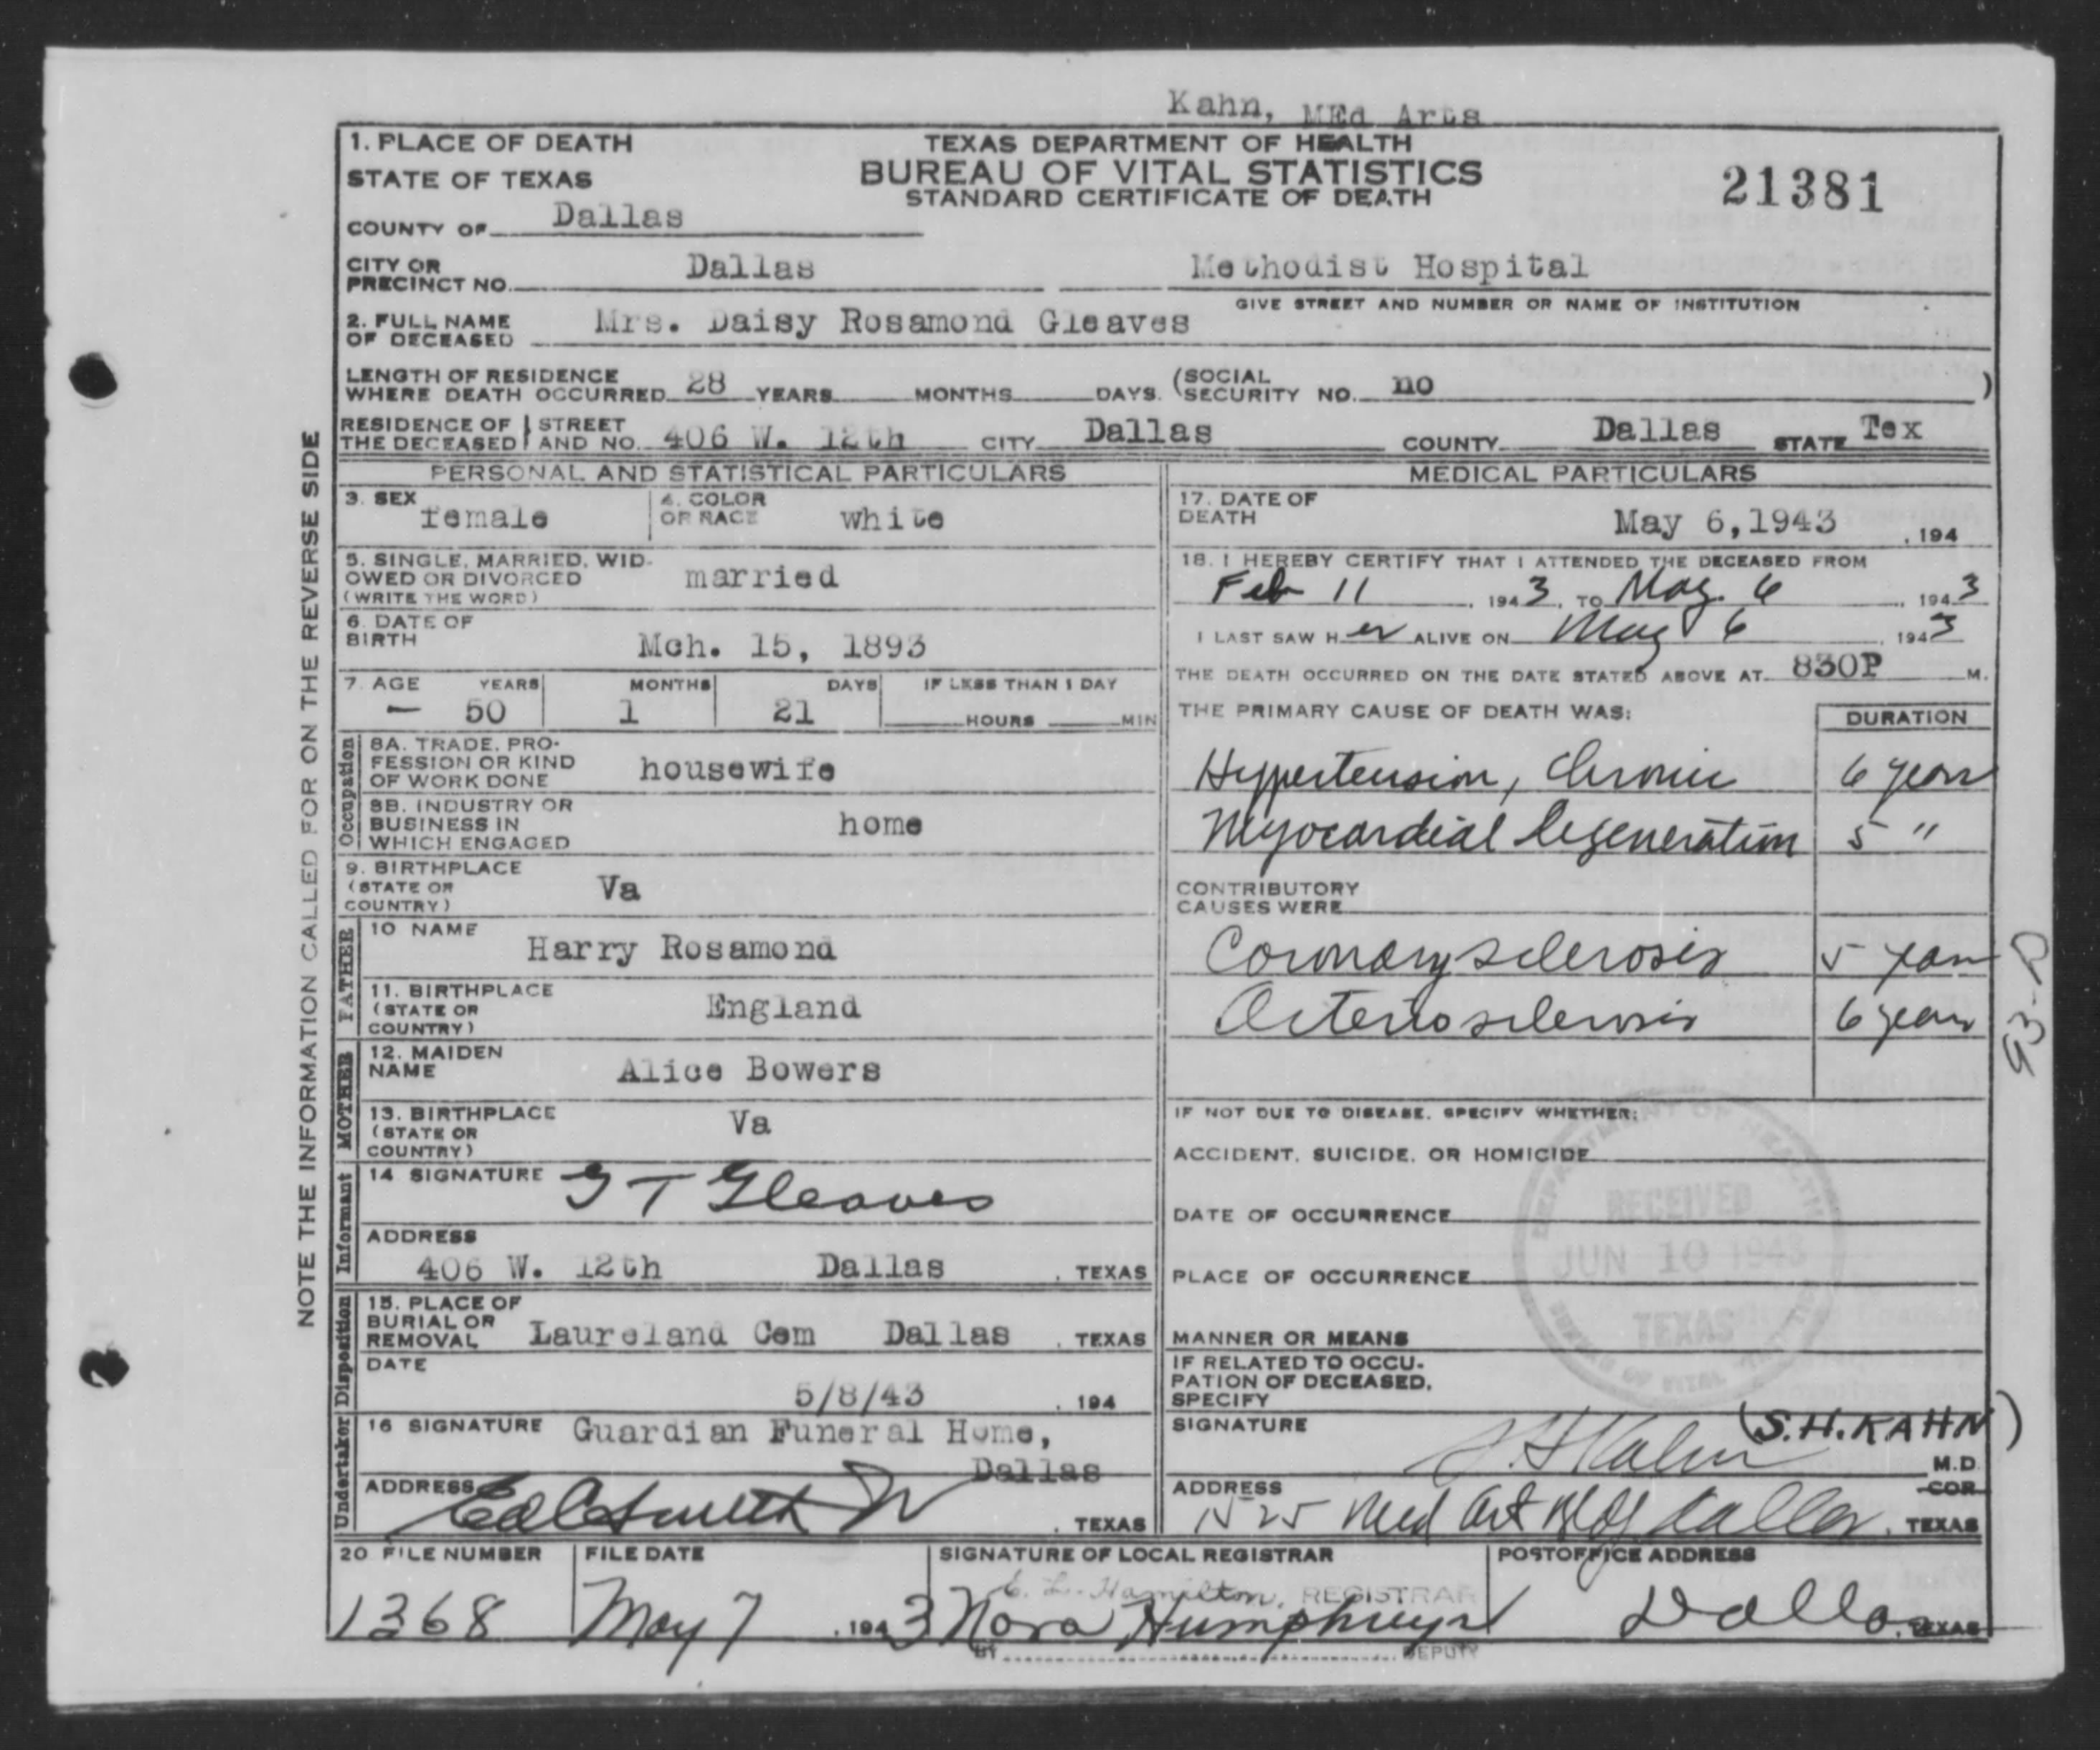 Kahn, MEd Arts
1. PLACE OF DEATH
STATE OF TEXAS
COUNTY OF Dallas
TEXAS DEPARTMENT OF HEALTH
BUREAU OF VITAL STATISTICS
STANDARD CERTIFICATE OF DEATH
21381
CITY OR PRECINCT NO. Dallas Methodist Hospital
GIVE STREET AND NUMBER OR NAME OF INSTITUTION
2. FULL NAME OF DECEASED Mrs. Daisy Rosamond Gleaves
LENGTH OF RESIDENCE WHERE DEATH OCCURRED 28 YEARS MONTHS DAYS. (SOCIAL SECURITY NO. no )
RESIDENCE OF THE DECEASED STREET AND NO. 406 W. 12th CITY Dallas COUNTY Dallas STATE Tex
PERSONAL AND STATISTICAL PARTICULARS
3. SEX female 4. COLOR OR RACE white
5. SINGLE, MARRIED, WIDOWED OR DIVORCED (WRITE THE WORD) married
6. DATE OF BIRTH Mch. 15, 1893
7. AGE YEARS MONTHS DAYS IF LESS THAN 1 DAY
— 50 1 21 HOURS MIN
Occupation
8A. TRADE, PROFESSION OR KIND OF WORK DONE housewife
8B. INDUSTRY OR BUSINESS IN WHICH ENGAGED home
9. BIRTHPLACE (STATE OR COUNTRY) Va
FATHER
10 NAME Harry Rosamond
11. BIRTHPLACE (STATE OR COUNTRY) England
MOTHER
12. MAIDEN NAME Alice Bowers
13. BIRTHPLACE (STATE OR COUNTRY) Va
Informant
14 SIGNATURE G T Gleaves
ADDRESS
406 W. 12th Dallas , TEXAS
Disposition
15. PLACE OF BURIAL OR REMOVAL Laureland Cem Dallas , TEXAS
DATE
5/8/43 , 194
Undertaker
16 SIGNATURE Guardian Funeral Home,
Dallas
ADDRESS , TEXAS
MEDICAL PARTICULARS
17. DATE OF DEATH May 6,1943 , 194
18. I HEREBY CERTIFY THAT I ATTENDED THE DECEASED FROM
Feb 11 , 1943, TO May. 6 , 1943
I LAST SAW Her ALIVE ON May 6 , 1943
THE DEATH OCCURRED ON THE DATE STATED ABOVE AT 830P M.
THE PRIMARY CAUSE OF DEATH WAS: DURATION
Hypertension, Chronic 6 years
Myocardial degeneration 5 "
CONTRIBUTORY CAUSES WERE
Coronary sclerosis 5 years
Arteriosclerosis 6 years
93-D
IF NOT DUE TO DISEASE, SPECIFY WHETHER:
ACCIDENT, SUICIDE, OR HOMICIDE
DATE OF OCCURRENCE
PLACE OF OCCURRENCE
MANNER OR MEANS
IF RELATED TO OCCUPATION OF DECEASED, SPECIFY
DEPARTMENT OF HEALTH
RECEIVED
JUN 10 1943
TEXAS
BUREAU OF VITAL STATISTICS
SIGNATURE S H Kahn (S.H. KAHN) M.D.
COR
ADDRESS
1525 Med Art Bldg Dallas, TEXAS
20 FILE NUMBER FILE DATE SIGNATURE OF LOCAL REGISTRAR POSTOFFICE ADDRESS
E. L. Hamilton, REGISTRAR
1368 May 7 , 1943 Nora Humphreys Dallas, TEXAS
BY DEPUTY
NOTE THE INFORMATION CALLED FOR ON THE REVERSE SIDE